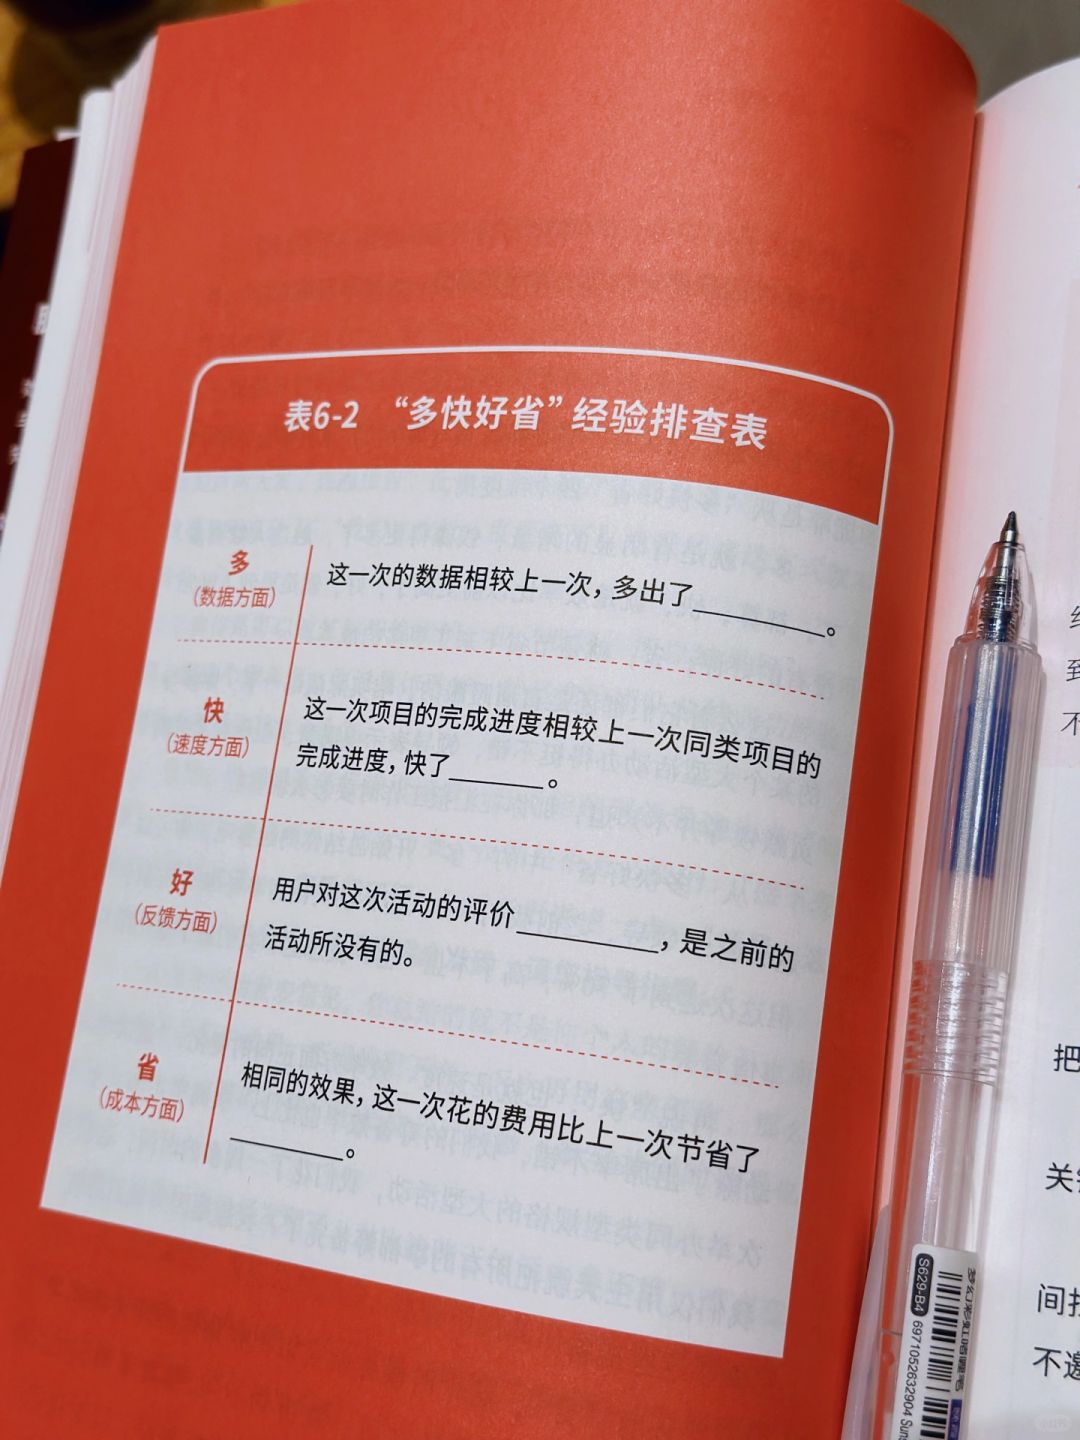 表6-2 “多快好省”经验排查表
多
（数据方面）
这一次的数据相较上一次，多出了________。
快
（速度方面）
这一次项目的完成进度相较上一次同类项目的
完成进度，快了______。
好
（反馈方面）
用户对这次活动的评价________，是之前的
活动所没有的。
省
（成本方面）
相同的效果，这一次花的费用比上一次节省了
_______。
到
不
把
关
不邀
梦幻彩虹喵喱笔
S629-B4
6971052632904
小红书